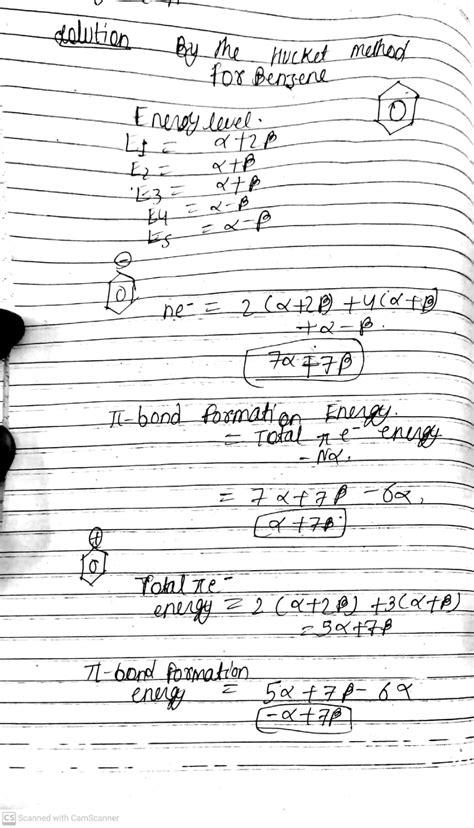 Solution By the Huckel method
for Benzene
Energy level.
E1 = α+2β
E2 = α+β
E3 = α+β
E4 = α-β
E5 = α-β
πe- = 2(α+2β) + 4(α+β)
+ α-β.
7α+7β
π-bond formation Energy.
= Total πe- energy
- Nα.
= 7α+7β - 6α,
α+7β
Total πe-
energy = 2(α+2β) + 3(α+β)
= 5α+7β
π-bond formation
energy = 5α+7β - 6α
-α+7β
CS Scanned with CamScanner